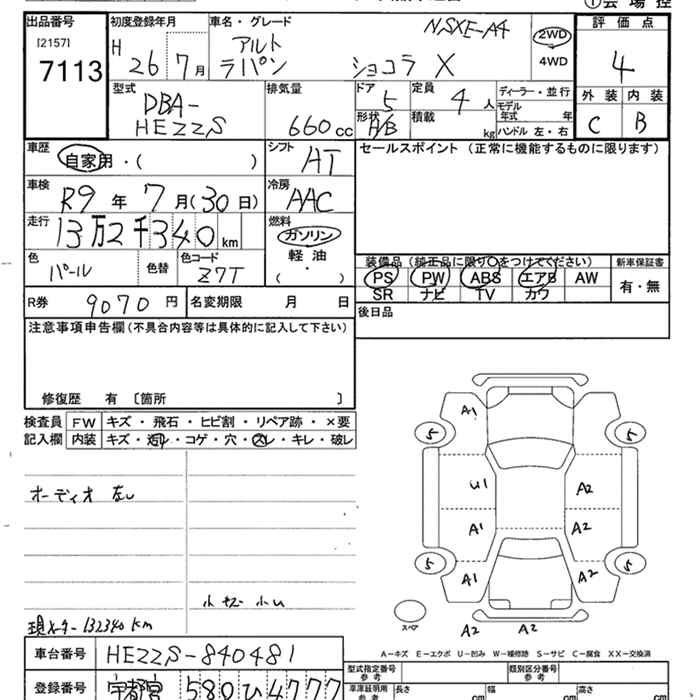 ①会場控
出品番号 初度登録年月 車名・グレード NSXE-A4 評価点
[2157] H アルト 2WD
7113 26 7月 ラパン ショコラ X 4WD 4
型式 排気量 ドア 定員 ディーラー・並行 外装 内装
DBA- 5 4人 モデル年式 年
HEZZS 660cc 形状 A/B 積載 kg ハンドル 左・右 C B
車歴 自家用・( ) シフト AT セールスポイント (正常に機能するものに限ります)
車検 R9年7月(30日) 冷房 AAC
走行 13万2千340km 燃料 ガソリン
色 パール 色替 色コード Z7T 軽油 装備品 (純正品に限り○をつけてください) 新車保証書
・
( ) PS PW ABS エアB AW 有・無
SR ナビ TV カワ
R券 9070円 名変期限 月 日 後日品
注意事項申告欄(不具合内容等は具体的に記入して下さい)
修復歴 有 〔箇所 〕
検査員 FW キズ・飛石・ヒビ割・リペア跡・×要
記入欄 内装 キズ・汚レ・コゲ・穴・スレ・キレ・破レ
A1
5 5
オーディオ 左し
U1 A2
A1 A2
5 5
A1 A2
スペア
A2 A2
現メーター132340km
A-キズ E-エクボ U-凹み W-補修跡 S-サビ C-腐食 XX-交換済
車台番号 HEZZS-840481
型式指定番号 類別区分番号
登録番号 宇都宮 580 ひ 4777
参考 参考
車庫証明用 長さ 幅 高さ
参考 cm cm cm